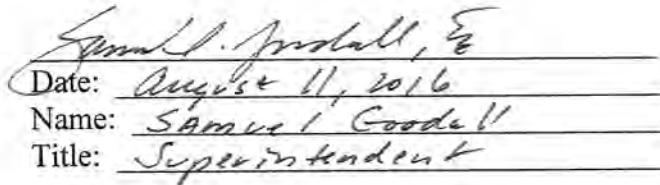 Samuel D. Goodall,
Date: August 11, 2016
Name: Samuel Goodall
Title: Superintendent